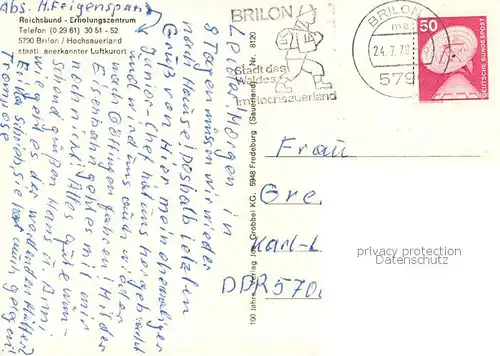 Abs. H. Feigenspan
Reichsbund - Erholungszentrum
Telefon (0 29 61) 30 51 - 52
5790 Brilon / Hochsauerland
staatl. anerkannter Luftkurort
BRILON
Stadt des
Waldes
im Hochsauerland
BRILON
24.7.7
579
50
DEUTSCHE BUNDESPOST
Leider! Morgen in
müssen wir wieder
nach Hause! Deshalb letzten
Gruß von Hier mein ehemaliger
Junior-Chef hat uns hergebracht
und wird uns auch wieder
nach Göttingen fahren. Mit der
Eisenbahn geht es mit mir
noch nicht! Alles gute wün-
schend grüßen Hans u. Anni.
wie geht es der werdenden Mutter?
Erika schrieb sie hat auch gelegen!
100 Jahre Verlag Jos. Grobbel KG, 5948 Fredeburg (Sauerland) Nr. 8120
Frau
Gre
Karl-L
DDR 570
privacy protection
Datenschutz